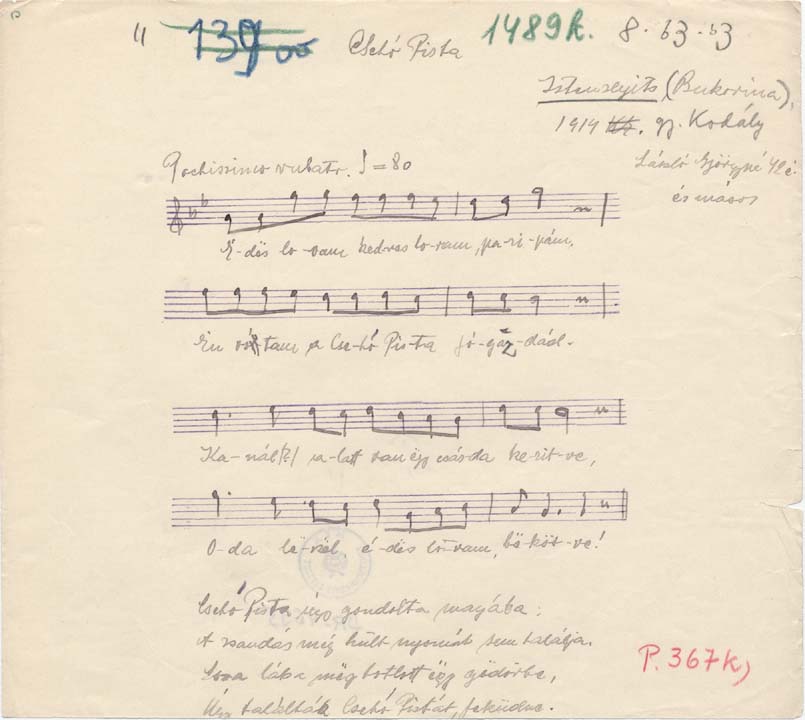 139
Csehó Pista
1489k.
8. b3 - b3
Istensegits (Bukovina),
1914 gy. Kodály
László Györgyné 42 é.
és mások
Pochissimo rubato. = 80
É-dös lo-vam kedves lo-vam, pa-ri-pám,
Én vó-tam a Cse-hó Pis-ta jó-gaz-dád.
Ka-nál(?) a-latt van égy csárda ke-rit-ve,
O-da le-vél é-dös lo-vam, bé-köt-ve!
Csehó Pista úgy gondolta magába:
A zsandár még hült nyomát sem találja.
Lova lába mégbotlott égy gödörbe,
Úgy találták Csehó Pistát, feküdve.
P. 367k,